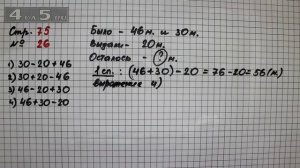 4da5.ru
Стр-75
№ 26
1) 30-20+46
2) 30+20-46
3) 46-20+30
4) 46+30-20
Было - 46 м. и 30 м.
Выдали - 20 м.
Осталось - ? м.
1 сп.: (46+30)-20 = 76-20 = 56 (м.)
выражение 4)